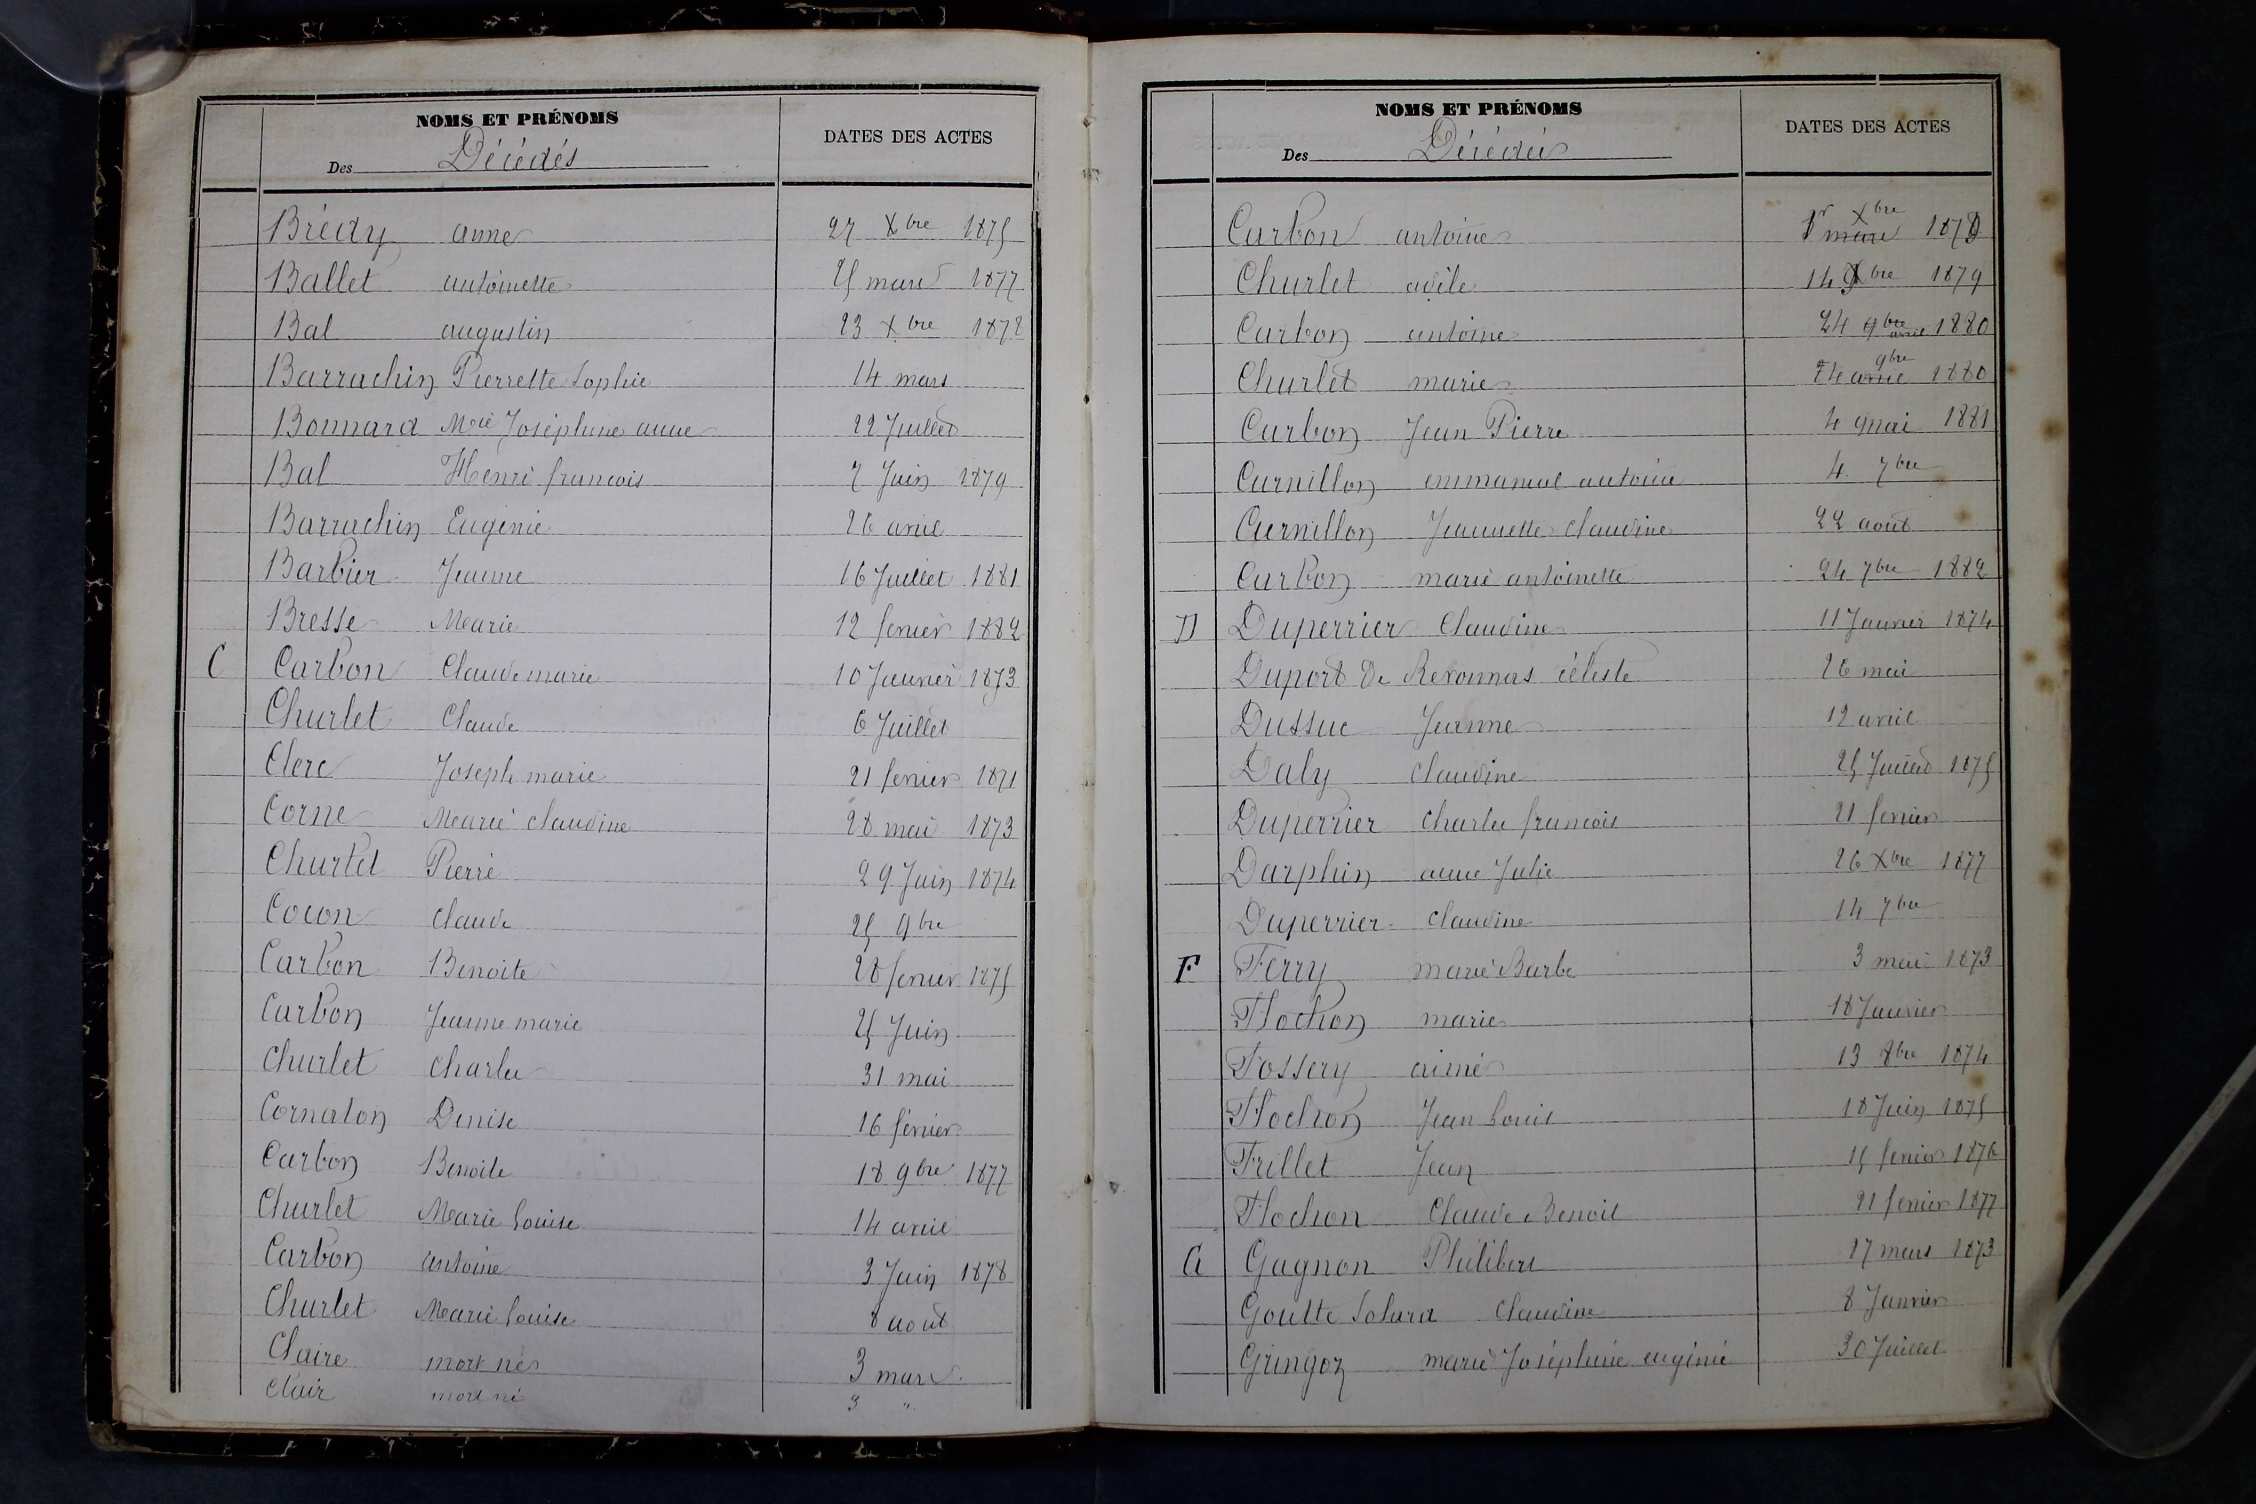 NOMS ET PRÉNOMS
Des Décédés
DATES DES ACTES
Brédy anne 27 Xbre 1875
Ballet antoinette 25 mars 1877
Bal augustin 23 Xbre 1878
Barrachin Pierrette Sophie 14 mars
Bonnard Mie Joséphine anne 22 Juillet
Bal Henri francois 7 Juin 1879
Barrachin Eugénie 26 avril
Barbier Jeanne 16 Juillet 1881
Bresse Marie 12 fevrier 1882
C Carbon Claude marie 10 Janvier 1873
Churlet Claude 6 Juillet
Clerc Joseph marie 21 fevrier 1871
Corne Marie claudine 28 mai 1873
Churlet Pierre 29 Juin 1874
Cocon claude 25 9bre
Carbon Benoite 28 fevrier 1875
Carbon Jeanne marie 25 Juin
Churlet Charles 31 mai
Cornaton Denise 16 février
Carbon Benoite 18 9bre 1877
Churlet Marie Louise 14 avril
Carbon antoine 3 Juin 1878
Churlet Marie Louise 8 août
Claire mort née 3 mars
Clair mort né 3 "
NOMS ET PRÉNOMS
Des Décédés
DATES DES ACTES
Carbon antoine 1r Xbre mars 187
Churlet adèle 14 bre 1879
Carbon antoine 24 9bre avril 1880
Churlet marie 24 9bre avril 1880
Carbon Jean Pierre 4 mai 1881
Curnillon emmanuel antoine 4 7bre
Curnillon Jeannette claudine 22 août
Carbon marie antoinette 24 7bre 1882
D Duperrier Claudine 11 Janvier 1874
Duport De Revonnas céleste 26 mai
Dussuc Jeanne 12 avril
Daly claudine 25 Juillet 1875
Duperrier charles francois 21 fevrier
Darphin anne Julie 26 Xbre 1877
Duperrier claudine 14 7bre
F Ferry marie Barbe 3 mai 1873
Flochon marie 18 Janvier
Fossery aimé 13 8bre 1874
Flochon Jean Louis 18 Juin 1875
Frillet Jean 15 fevrier 1876
Flochon Claude Benoit 21 fevrier 1877
G Gagnon Philibert 17 mars 1873
Goutte Solard Claudine 8 Janvier
Gringoz marie Joséphine eugénie 30 Juillet